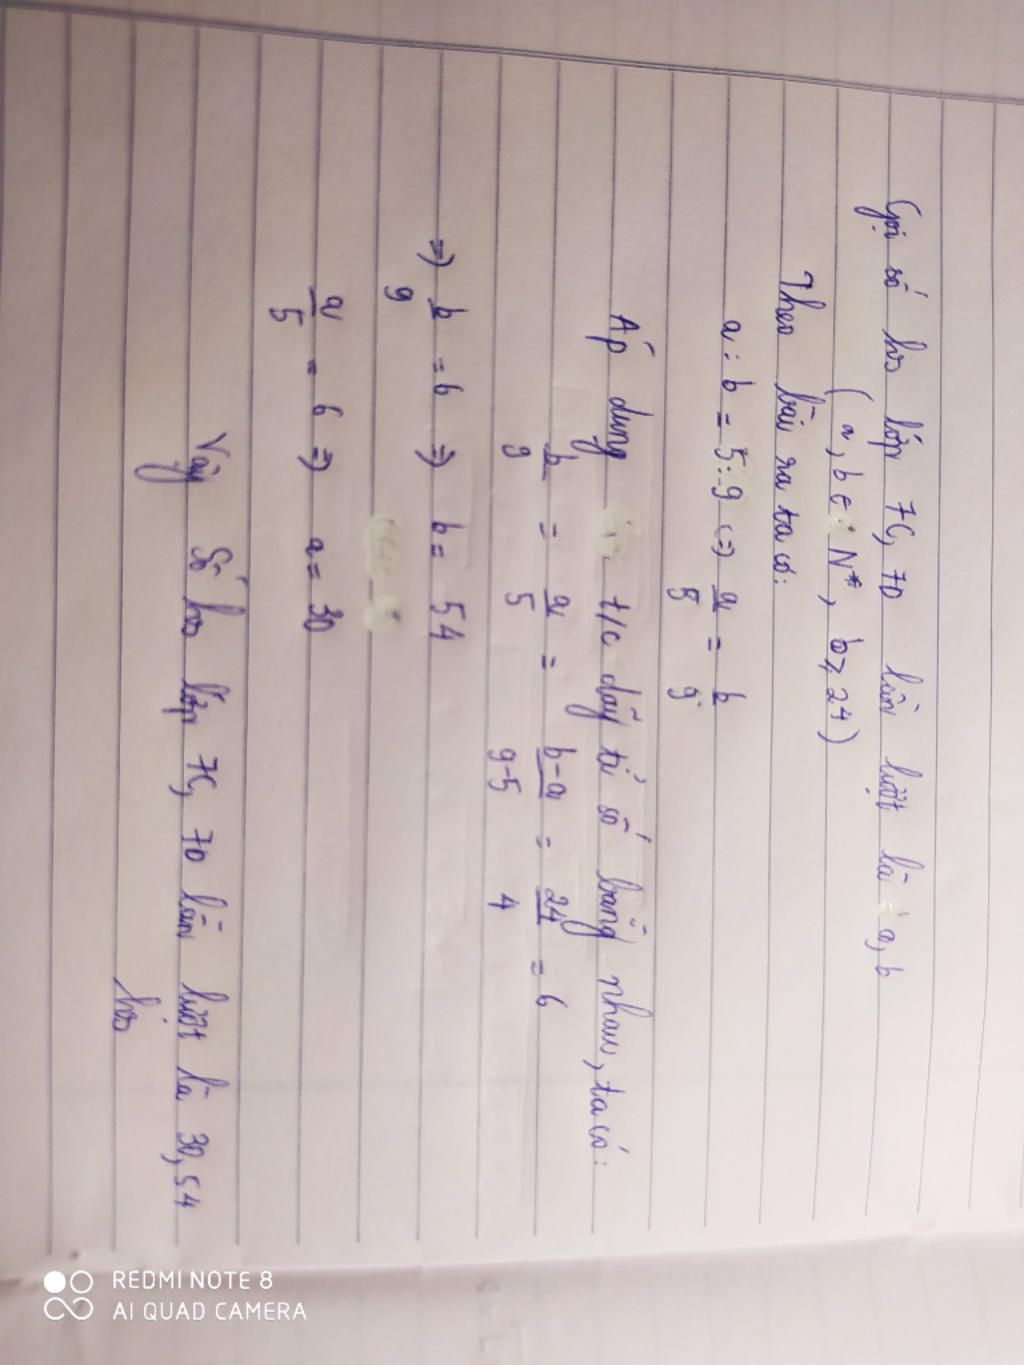 Gọi số hs lớp 7C, 7D lần lượt là a, b
(a, b ∈ N*, b ≥ 24)
Theo bài ra ta có:
a : b = 5 : 9 (=) a/5 = b/9
Áp dụng t/c dãy tỉ số bằng nhau, ta có:
b/9 = a/5 = b-a/9-5 = 24/4 = 6
=) b/9 = 6 =) b = 54
a/5 = 6 =) a = 30
Vậy số hs lớp 7C, 7D lần lượt là 30, 54
hs
REDMI NOTE 8
AI QUAD CAMERA